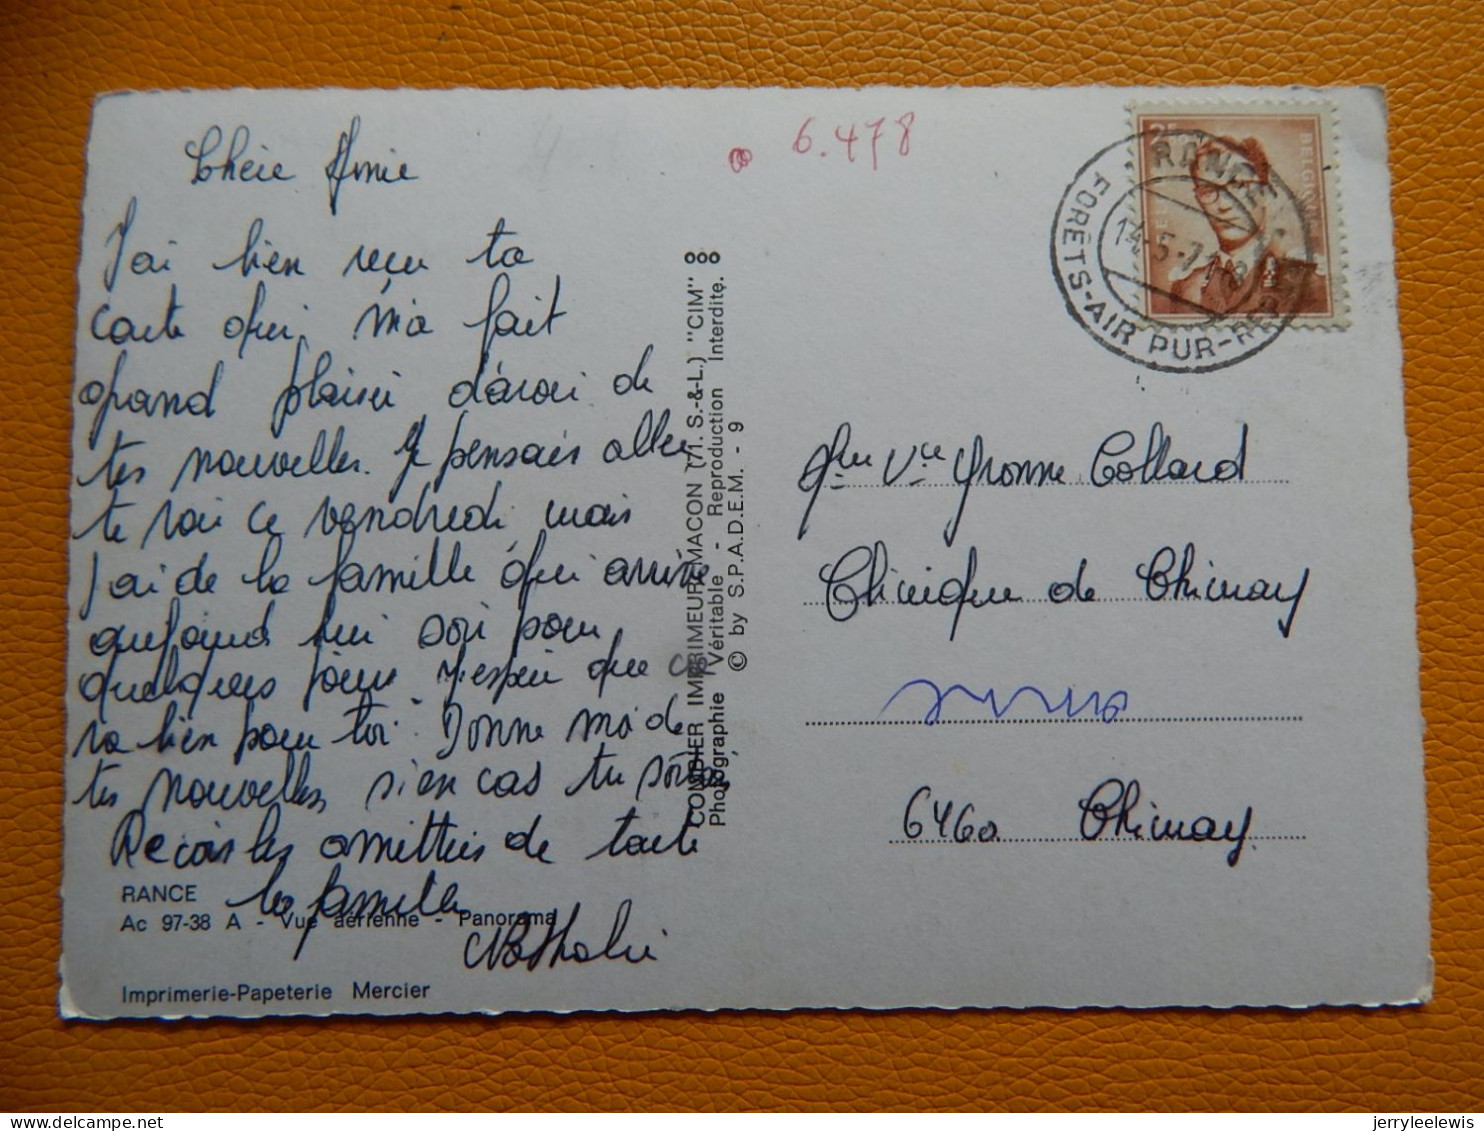 Chére Amie
J'ai bien reçu ta
carte qui m'a fait
grand plaisir d'avoir de
tes nouvelles. Je pensais aller
te voir ce vendredi mais
j'ai de la famille qui arrive
aujourd'hui soir pour
quelques jours j'espère que ca
va bien pour toi. Donne moi de
tes nouvelles, si en cas tu
Recois les amitties de toute
la famille
Nathalie
RANCE
Ac 97-38 A - Vue aérienne - Panorama
Imprimerie-Papeterie Mercier
COMBIER IMPRIMEUR MACON (71. S.-&-L.) "CIM"
Photographie Véritable - Reproduction Interdite.
© by S.P.A.D.E.M. - 9
6.478
BELGIE
RANCE
14-5-71
FORÊTS-AIR PUR-
Mme Vve Yvonne Collard
Clinique de Chimay
6460 Chimay
jerryleelewis